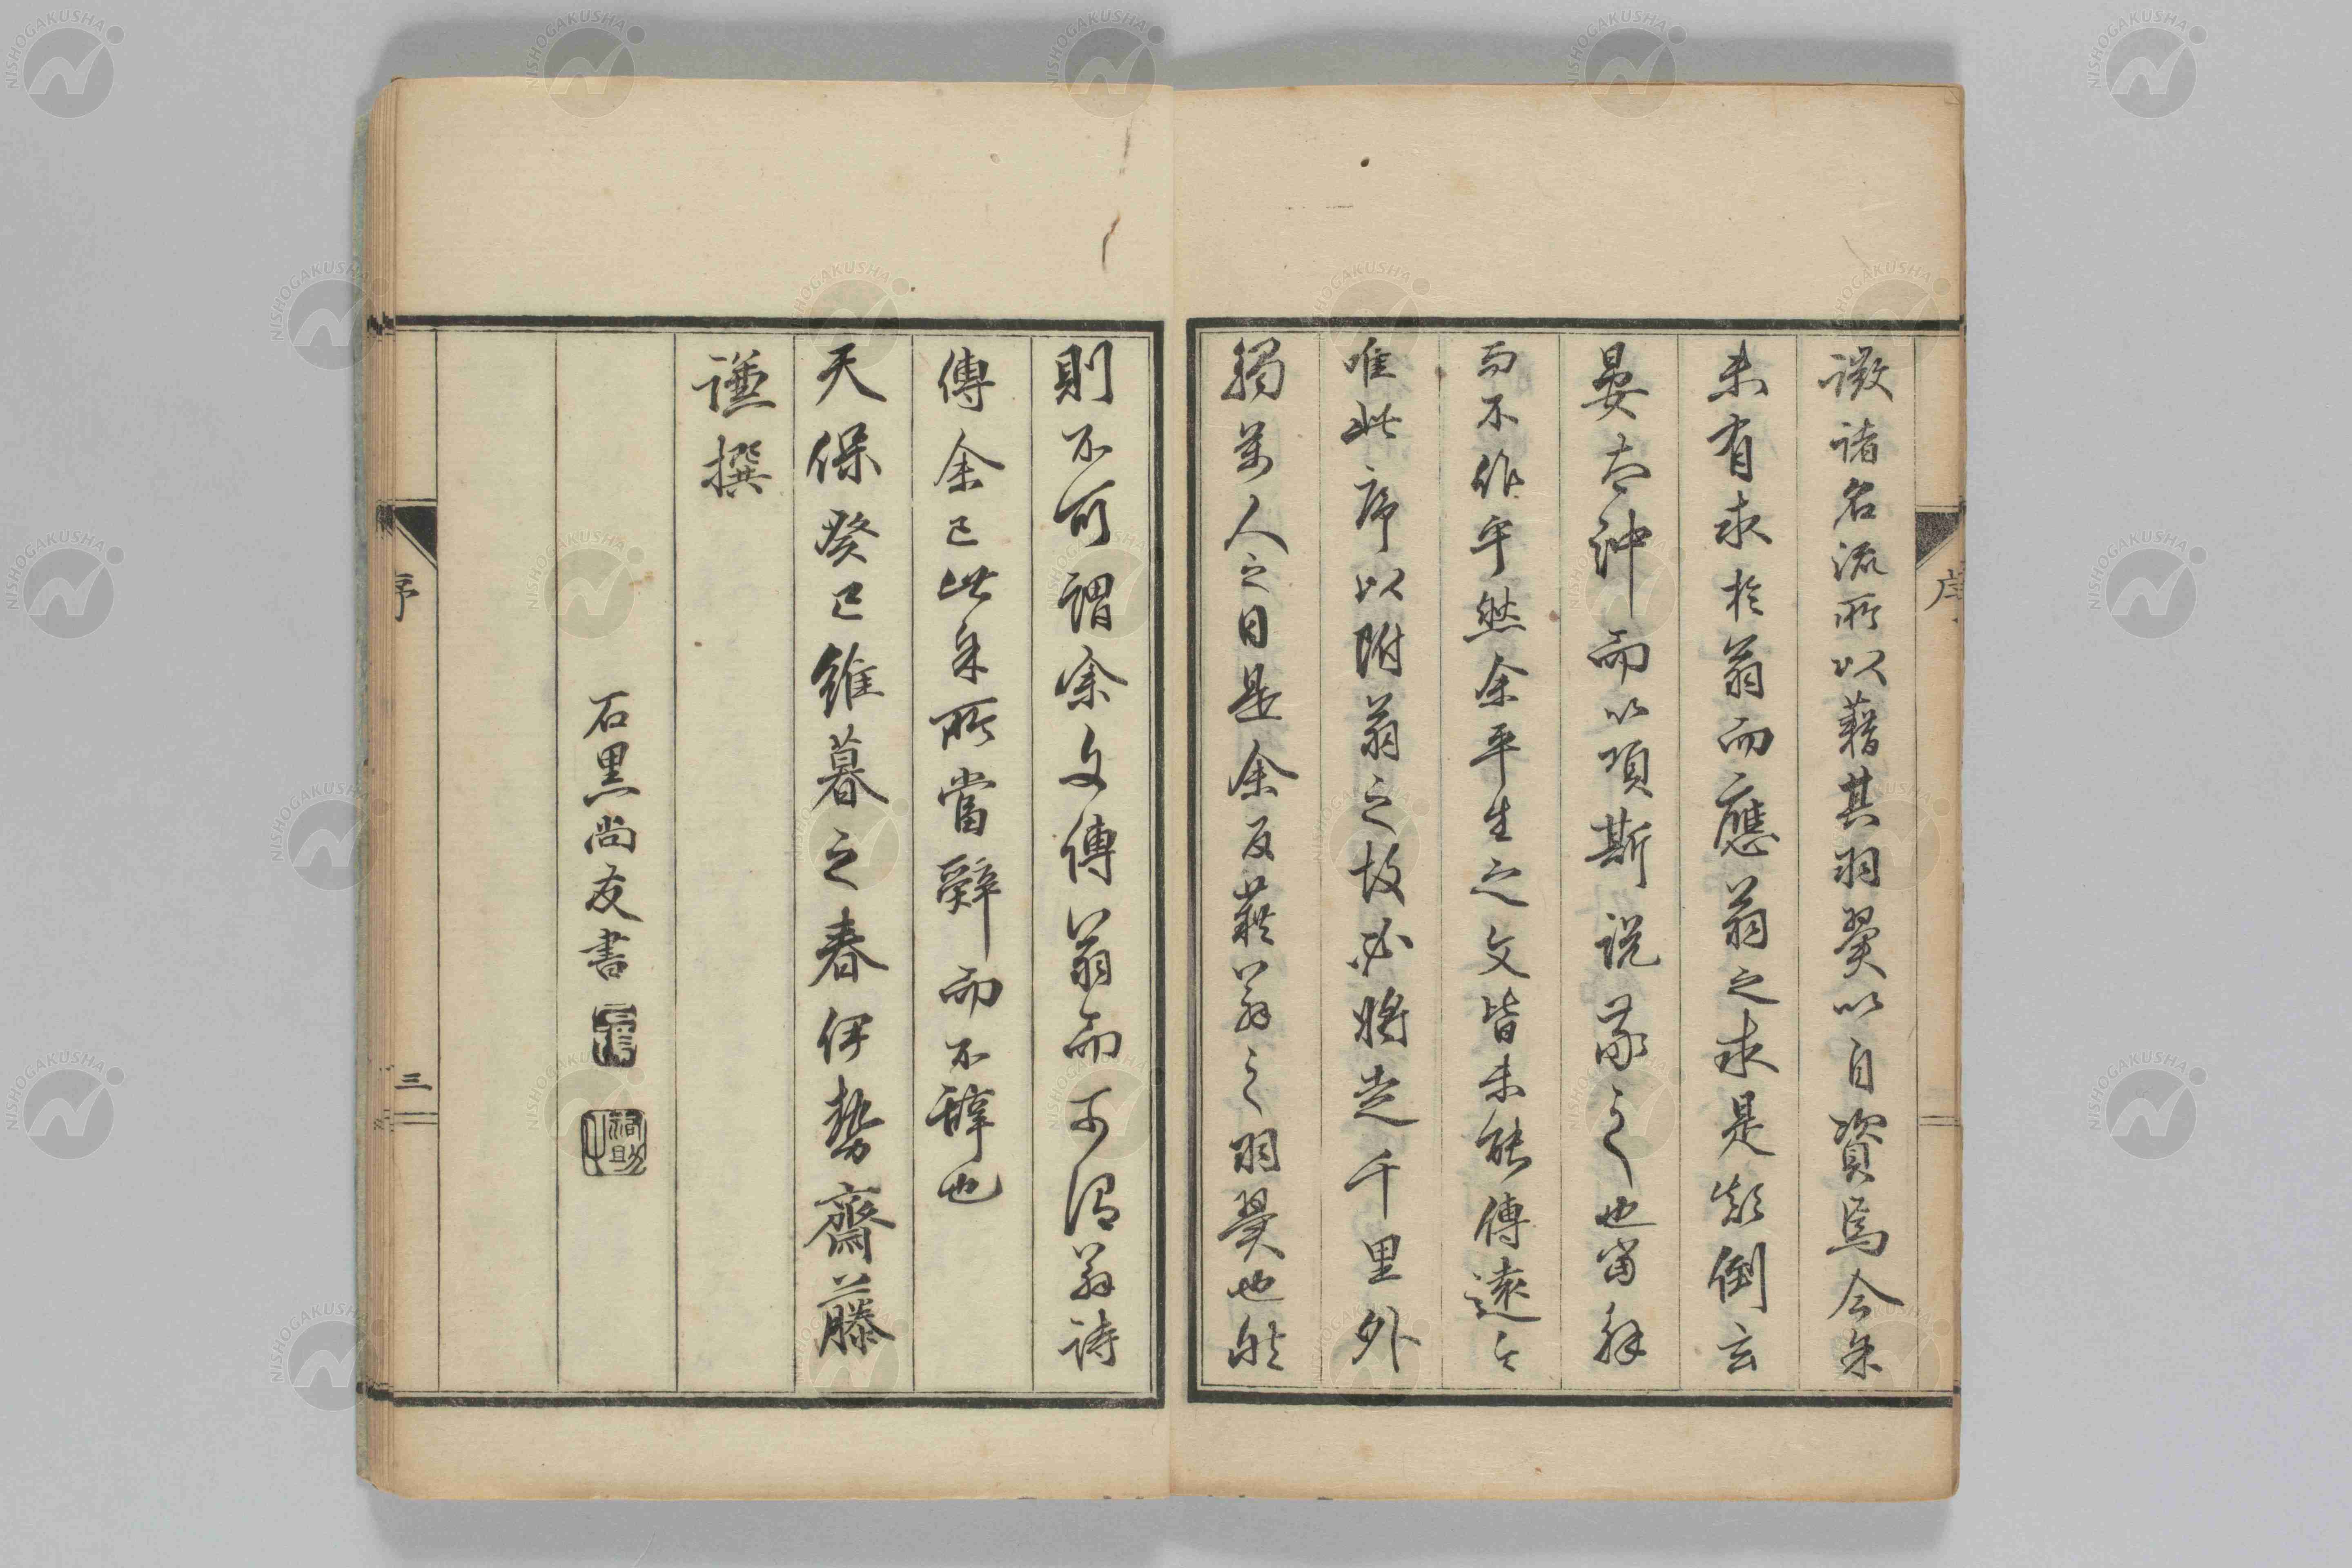 徵諸名流所以藉其羽翼以自資焉今余
未有求於翁而應翁之求是顛倒玄
晏太沖而以項斯說家之也當
而不作乎然余平生之文皆未能傳遠今
唯此序以附翁之故必將走千里外
獨萬人之目是余反藉翁之羽翼也然
則不可謂余文傳翁而可謂翁詩
傳余已此余所當辭而不辭也
天保癸巳維暮之春伊勢齋藤
謹撰
石黑尚友書
序
序
三
NISHOGAKUSHA